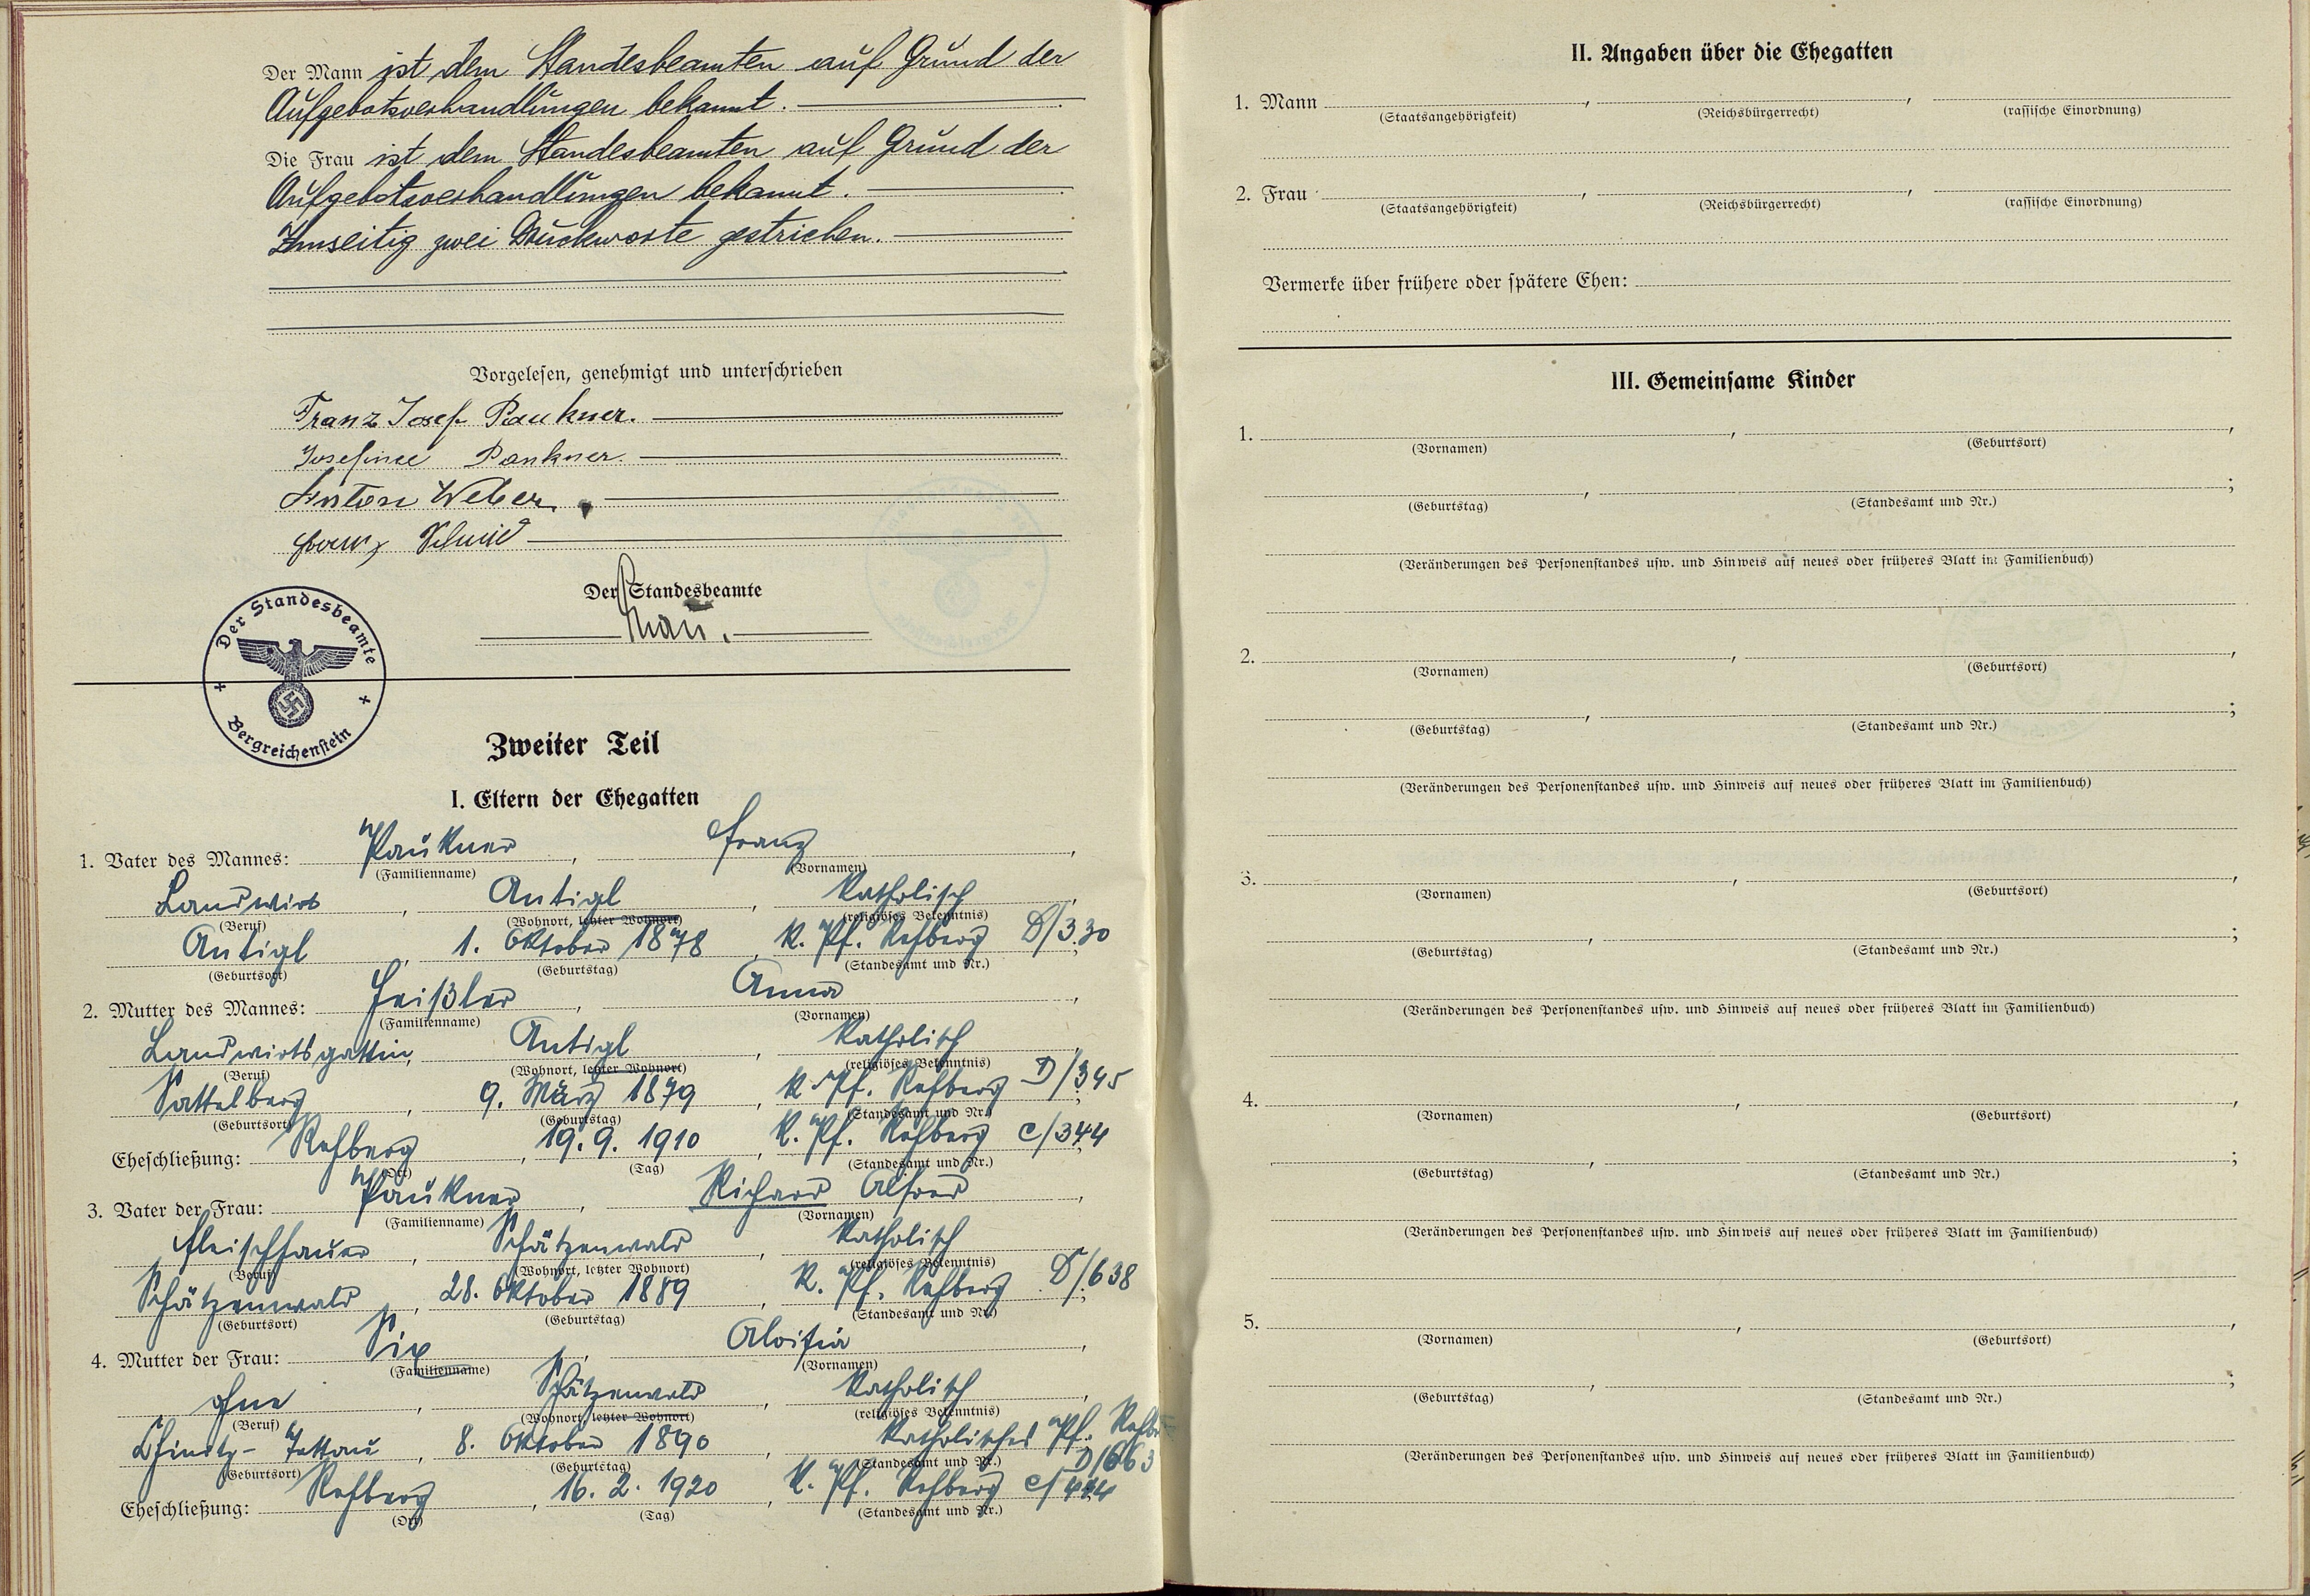 Der Mann ist dem Standesbeamten auf Grund der
Aufgebotsverhandlungen bekannt.
Die Frau ist dem Standesbeamten auf Grund der
Aufgebotsverhandlungen bekannt.
Umseitig zwei Druckworte gestrichen.
Vorgelesen, genehmigt und unterschrieben
Franz Josef Paukner.
Josefine Paukner.
Anton Weber.
Franz Schmid
Der Standesbeamte
Der Standesbeamte
Bergreichenstein
Zweiter Teil
I. Eltern der Ehegatten
1. Vater des Mannes: Paukner, Franz,
(Familienname) (Vornamen)
Landwirt, Antigl, katholisch,
(Beruf) (Wohnort, letzter Wohnort) (religiöses Bekenntnis)
Antigl, 1. Oktober 1878, k. Pf. Rehberg D/330
(Geburtsort) (Geburtstag) (Standesamt und Nr.)
2. Mutter des Mannes: Feißler, Anna,
(Familienname) (Vornamen)
Landwirtsgattin, Antigl, katholisch,
(Beruf) (Wohnort, letzter Wohnort) (religiöses Bekenntnis)
Sattelberg, 9. März 1879, k. Pf. Rehberg D/345
(Geburtsort) (Geburtstag) (Standesamt und Nr.)
Eheschließung: Rehberg, 19. 9. 1910, k. Pf. Rehberg C/344
(Ort) (Tag) (Standesamt und Nr.)
3. Vater der Frau: Paukner, Richard Alfred,
(Familienname) (Vornamen)
Fleischhauer, Schätzenwald, katholisch
(Beruf) (Wohnort, letzter Wohnort) (religiöses Bekenntnis)
Schätzenwald, 28. Oktober 1889, k. Pf. Rehberg D/638
(Geburtsort) (Geburtstag) (Standesamt und Nr.)
4. Mutter der Frau: Six, Aloisia,
(Familienname) (Vornamen)
ohne, Schätzenwald, katholisch,
(Beruf) (Wohnort, letzter Wohnort) (religiöses Bekenntnis)
Chinitz-Tettau, 8. Oktober 1890, Katholisches Pf.
D/663
(Geburtsort) (Geburtstag) (Standesamt und Nr.)
Eheschließung: Rehberg, 16. 2. 1920, k. Pf. Rehberg
(Ort) (Tag) (Standesamt und Nr.)
II. Angaben über die Ehegatten
1. Mann
(Staatsangehörigkeit) (Reichsbürgerrecht) (rassische Einordnung)
2. Frau
(Staatsangehörigkeit) (Reichsbürgerrecht) (rassische Einordnung)
Vermerke über frühere oder spätere Ehen:
III. Gemeinsame Kinder
1.
(Vornamen) (Geburtsort)
(Geburtstag) (Standesamt und Nr.)
(Veränderungen des Personenstandes usw. und Hinweis auf neues oder früheres Blatt im Familienbuch)
2.
(Vornamen) (Geburtsort)
(Geburtstag) (Standesamt und Nr.)
(Veränderungen des Personenstandes usw. und Hinweis auf neues oder früheres Blatt im Familienbuch)
3.
(Vornamen) (Geburtsort)
(Geburtstag) (Standesamt und Nr.)
(Veränderungen des Personenstandes usw. und Hinweis auf neues oder früheres Blatt im Familienbuch)
4.
(Vornamen) (Geburtsort)
(Geburtstag) (Standesamt und Nr.)
(Veränderungen des Personenstandes usw. und Hinweis auf neues oder früheres Blatt im Familienbuch)
5.
(Vornamen) (Geburtsort)
(Geburtstag) (Standesamt und Nr.)
(Veränderungen des Personenstandes usw. und Hinweis auf neues oder früheres Blatt im Familienbuch)